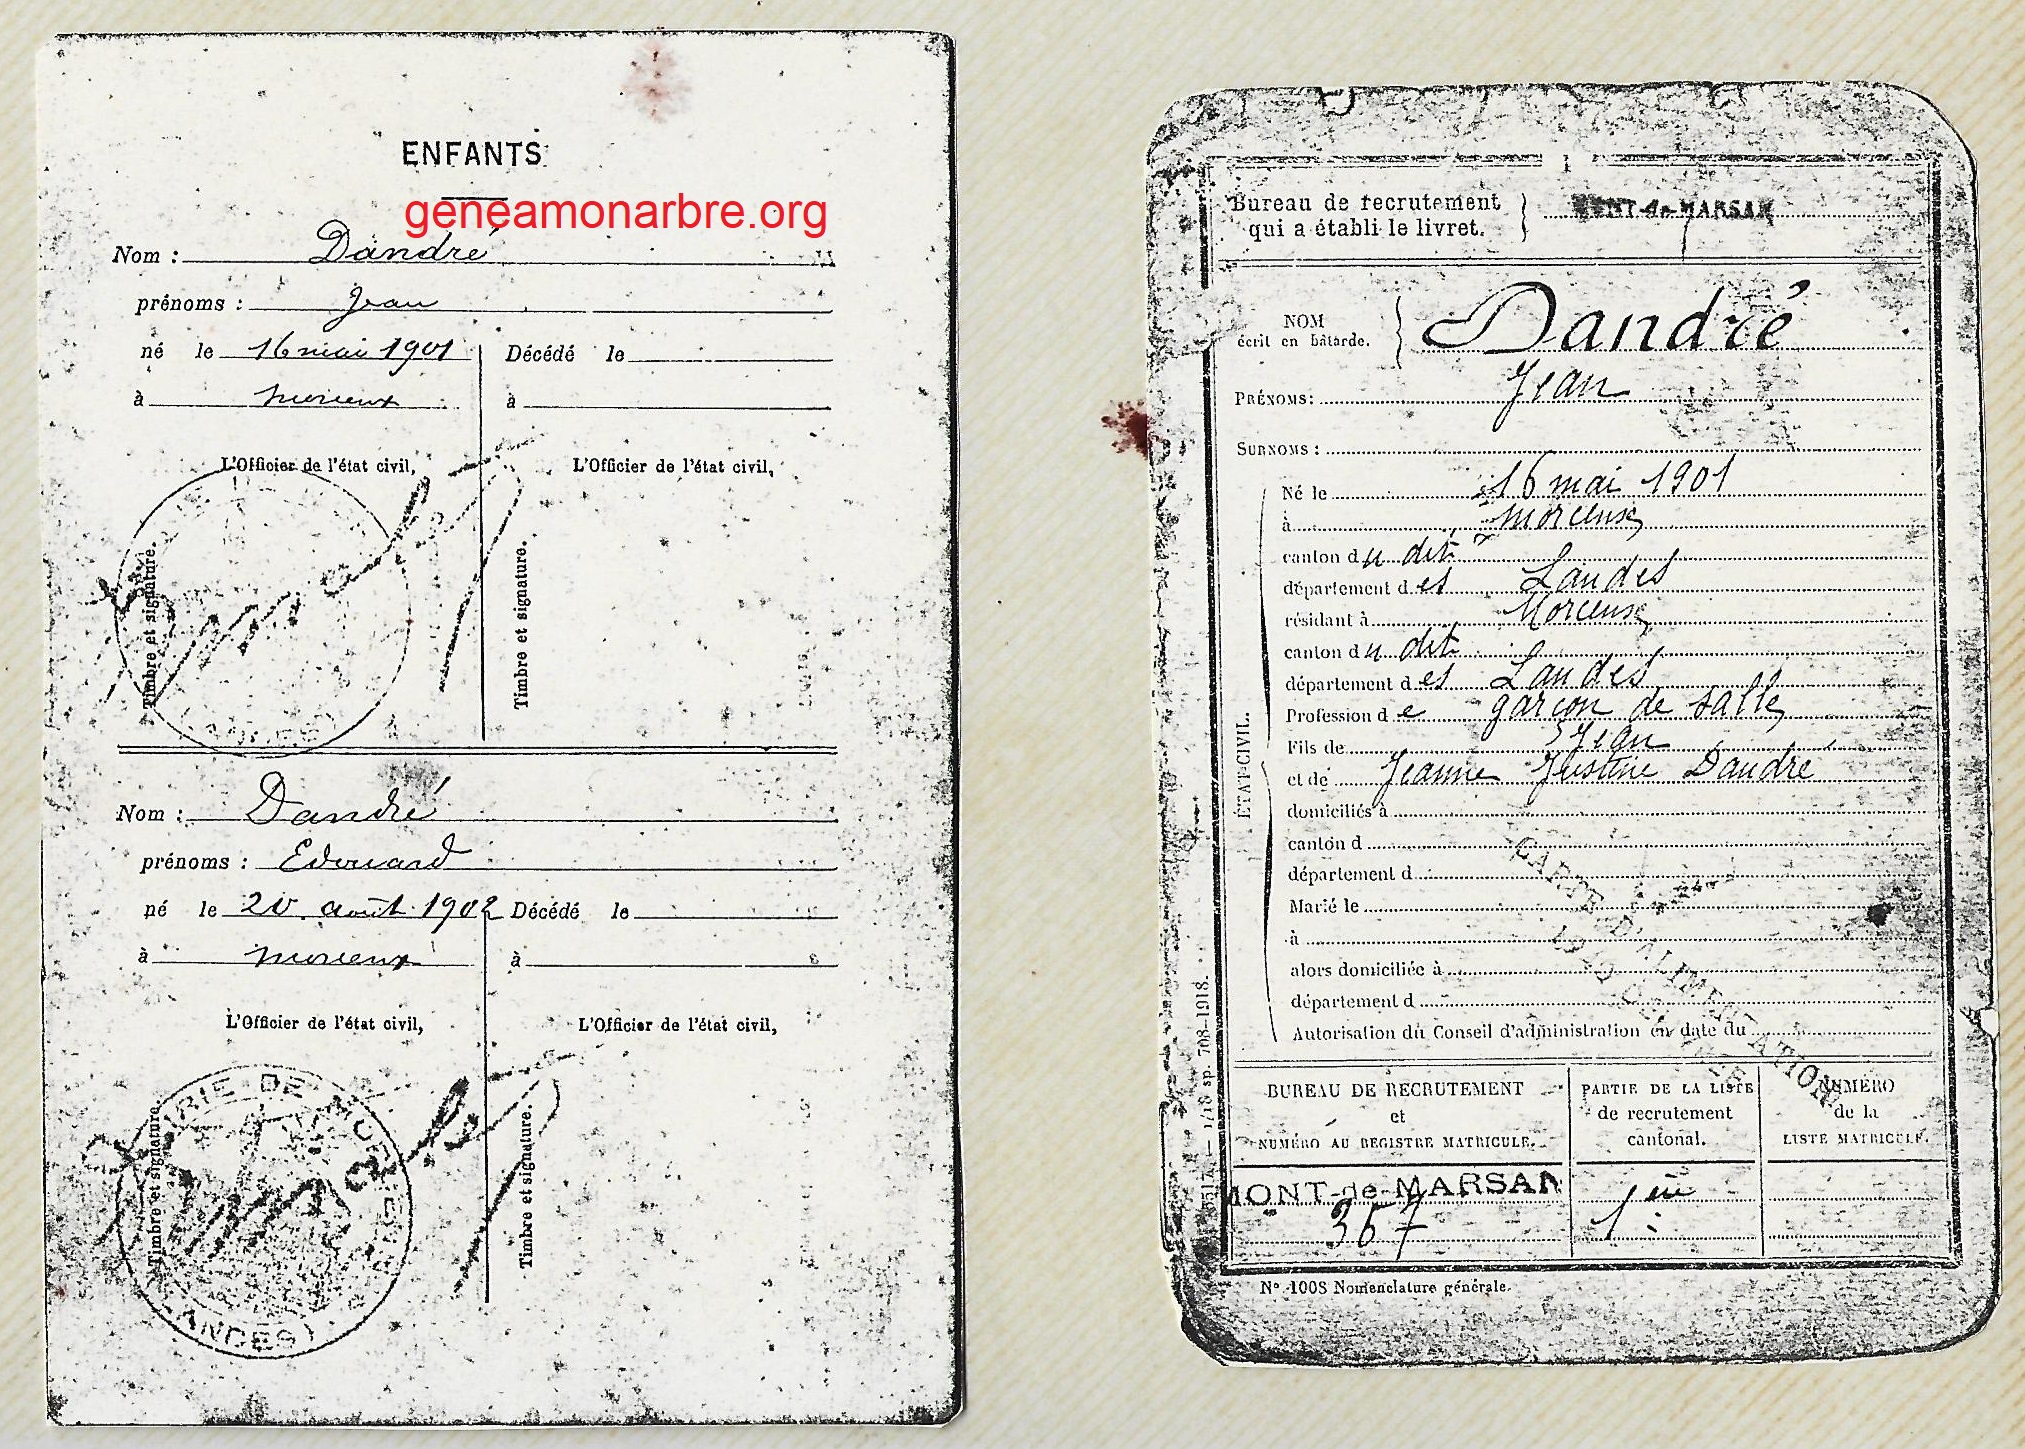 ENFANTS
geneamonarbre.org
Nom : Dandré
prénoms : Jean
né le 16 mai 1901 Décédé le
à Morcenx à
L'Officier de l'état civil, L'Officier de l'état civil,
Timbre et signature. Timbre et signature.
Nom : Dandré
prénoms : Edouard
né le 20 août 1902 Décédé le
à Morcenx à
L'Officier de l'état civil, L'Officier de l'état civil,
Timbre et signature. Timbre et signature.
MAIRIE DE MORCENX
(LANDES)
Bureau de recrutement
qui a établi le livret. } MONT-de-MARSAN
NOM
écrit en bâtarde. } Dandré
PRÉNOMS: Jean
SURNOMS :
ÉTAT CIVIL.
Né le 16 mai 1901
à Morcenx
canton du dit
département des Landes
résidant à Morcenx
canton du dit
département des Landes
Profession de garçon de salle
Fils de Jean
et de Jeanne Justine Dandré
domiciliés à
canton d
département d
Marié le
à
alors domiciliée à
département d
Autorisation du Conseil d'administration en date du
CARTE D'ALIMENTATION
BUREAU DE RECRUTEMENT
et
NUMÉRO AU REGISTRE MATRICULE.
PARTIE DE LA LISTE
de recrutement
cantonal.
NUMÉRO
de la
LISTE MATRICULE.
MONT-de-MARSAN
367
1ère
N° 1008 Nomenclature générale.
sp. 708-1918.